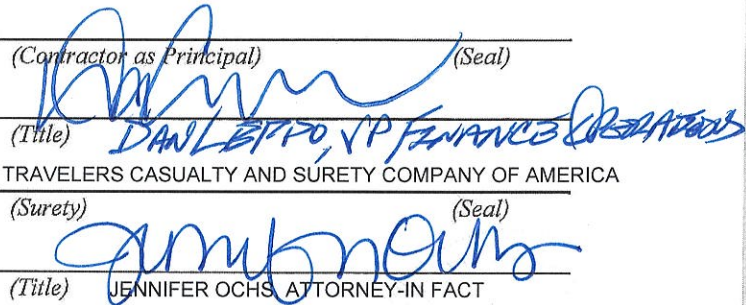 (Contractor as Principal) (Seal)
(Title) DAN LEPPO, VP FINANCE & OPERATIONS
TRAVELERS CASUALTY AND SURETY COMPANY OF AMERICA
(Surety) (Seal)
(Title) JENNIFER OCHS, ATTORNEY-IN FACT